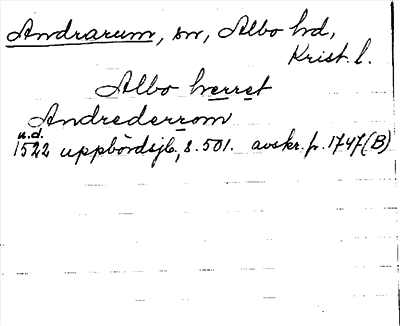 Andrarum, sn, Albo hd,
Krist. l.
Albo herret
Andrederrom
u.d.
1522 uppbördsjb, s. 501. avskr. fr. 1747 (B)